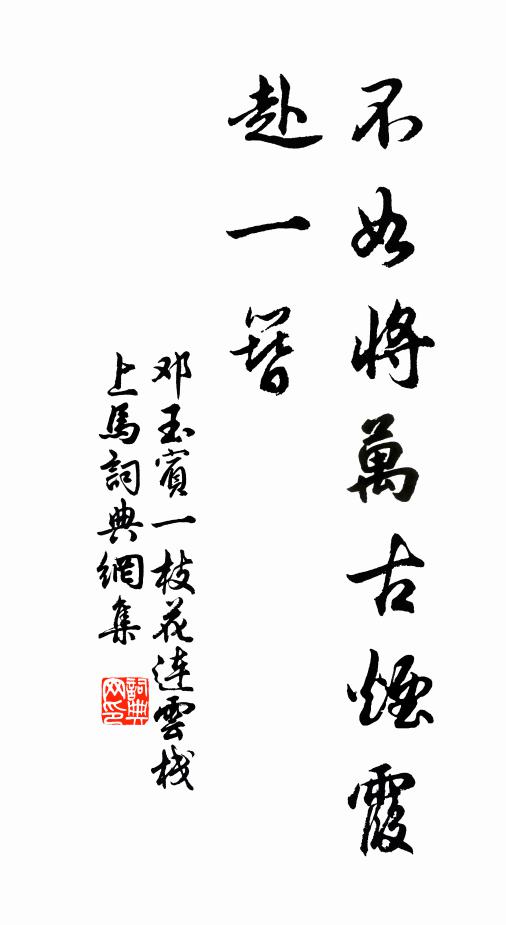 不如將萬古煙霞
赴一簪
邓玉賓一枝花連雲栈
上馬詞典網集
詞典
网印